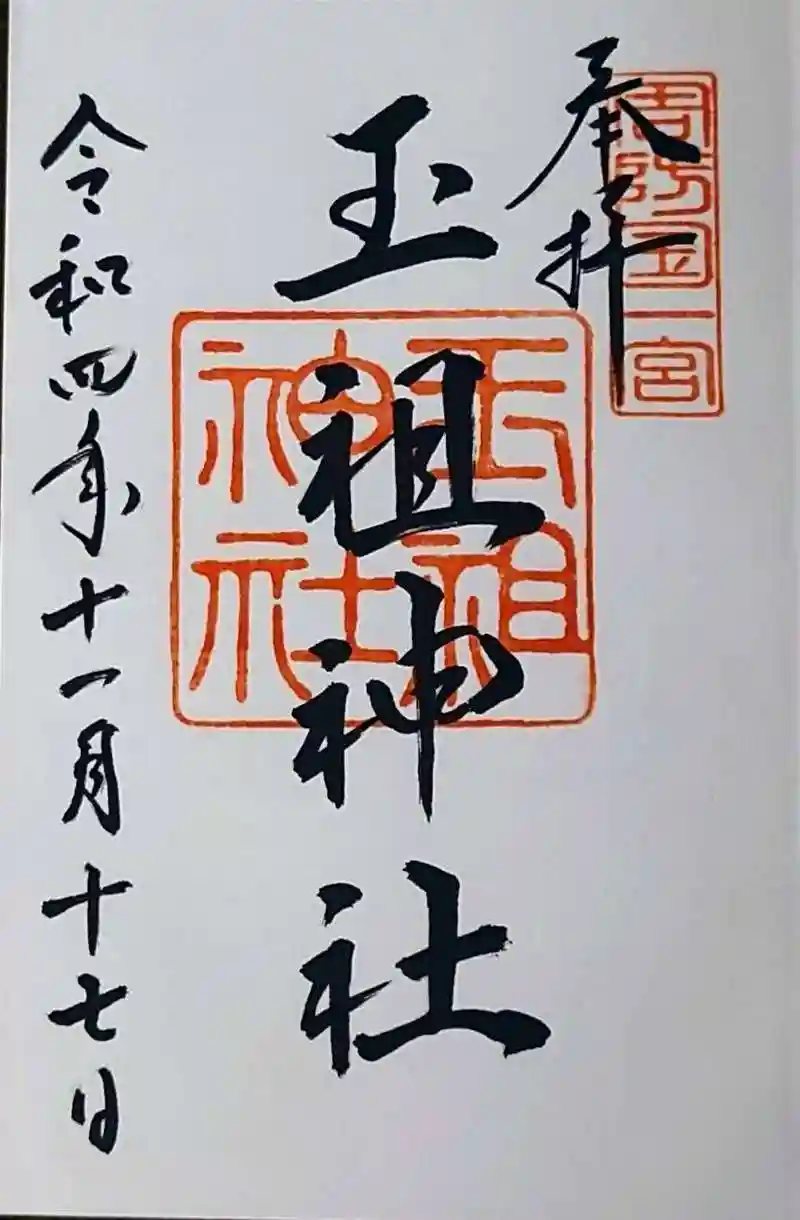 奉拝
周防国一宮
玉祖神社
玉祖
神社
令和四年十一月十七日